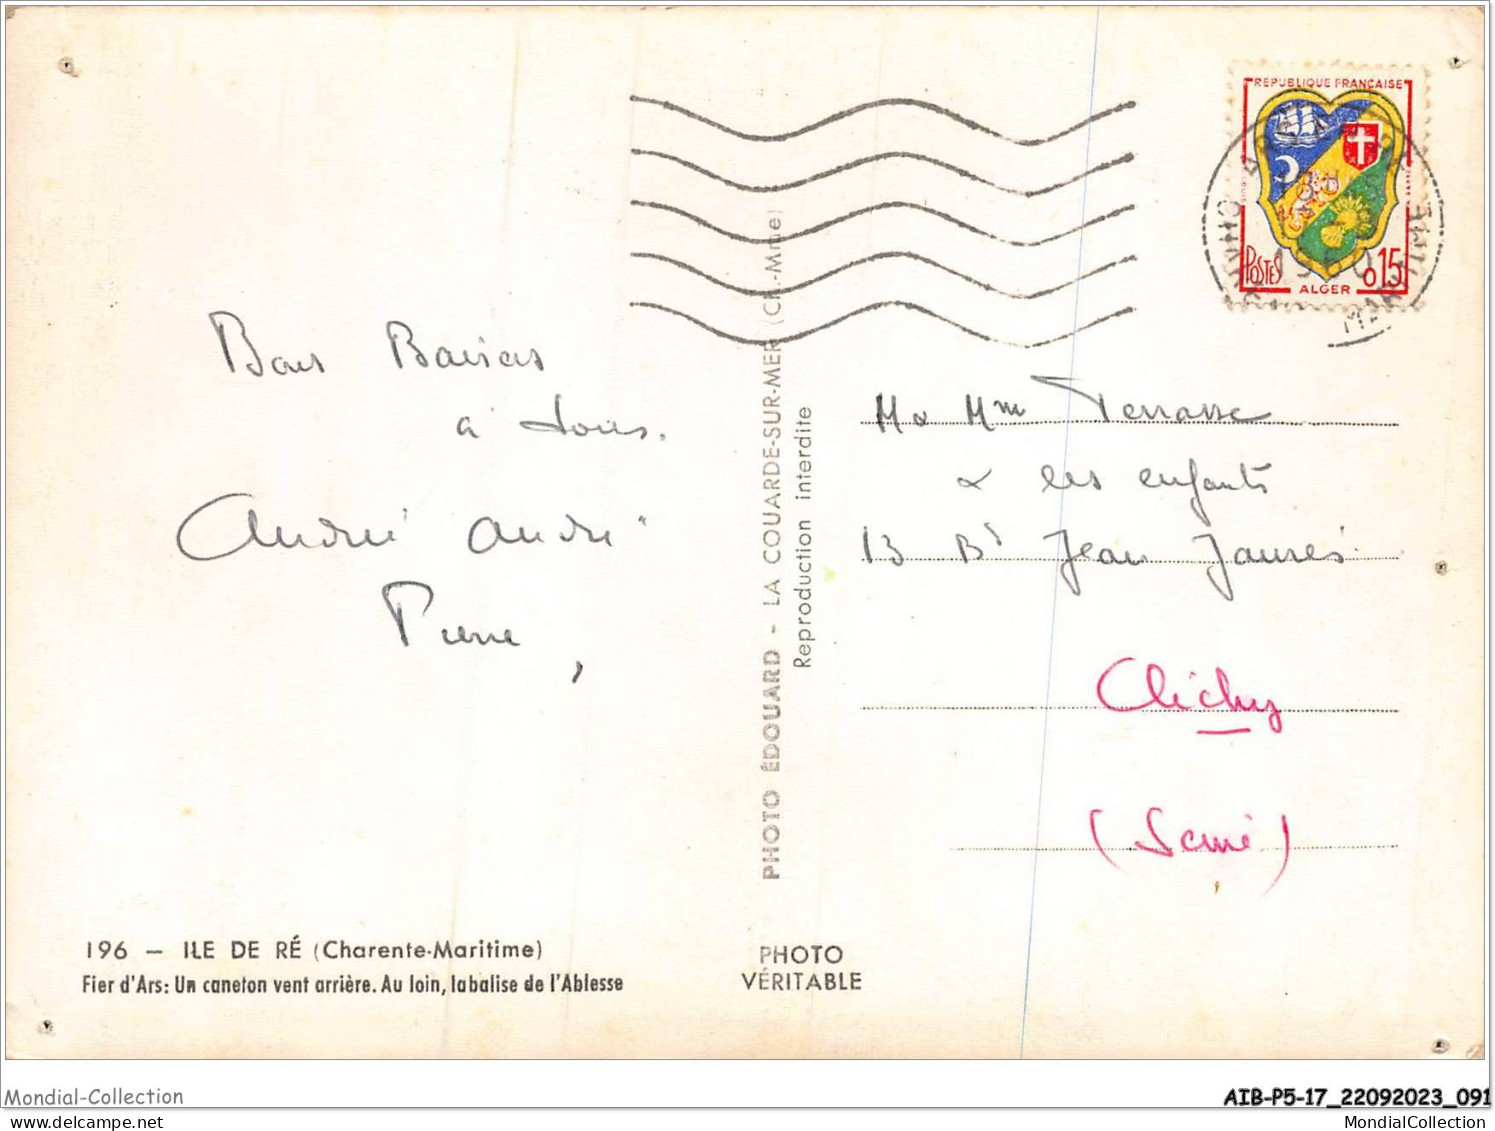 REPUBLIQUE FRANÇAISE
POSTES
0,15
ALGER
1960
CHARENTE MARITIME
Bons Baisers
à tous.
André Andrée
Pierre
M & Mme Terrasse
& les enfants
13 Bd Jean Jaurès
Clichy
(Seine)
PHOTO ÉDOUARD - LA COUARDE-SUR-MER (Ch.-Mme)
Reproduction interdite
196 — ILE DE RÉ (Charente-Maritime)
Fier d'Ars: Un caneton vent arrière. Au loin, la balise de l'Ablesse
PHOTO
VÉRITABLE
Mondial-Collection
AIB-P5-17_22092023_091
MondialCollection